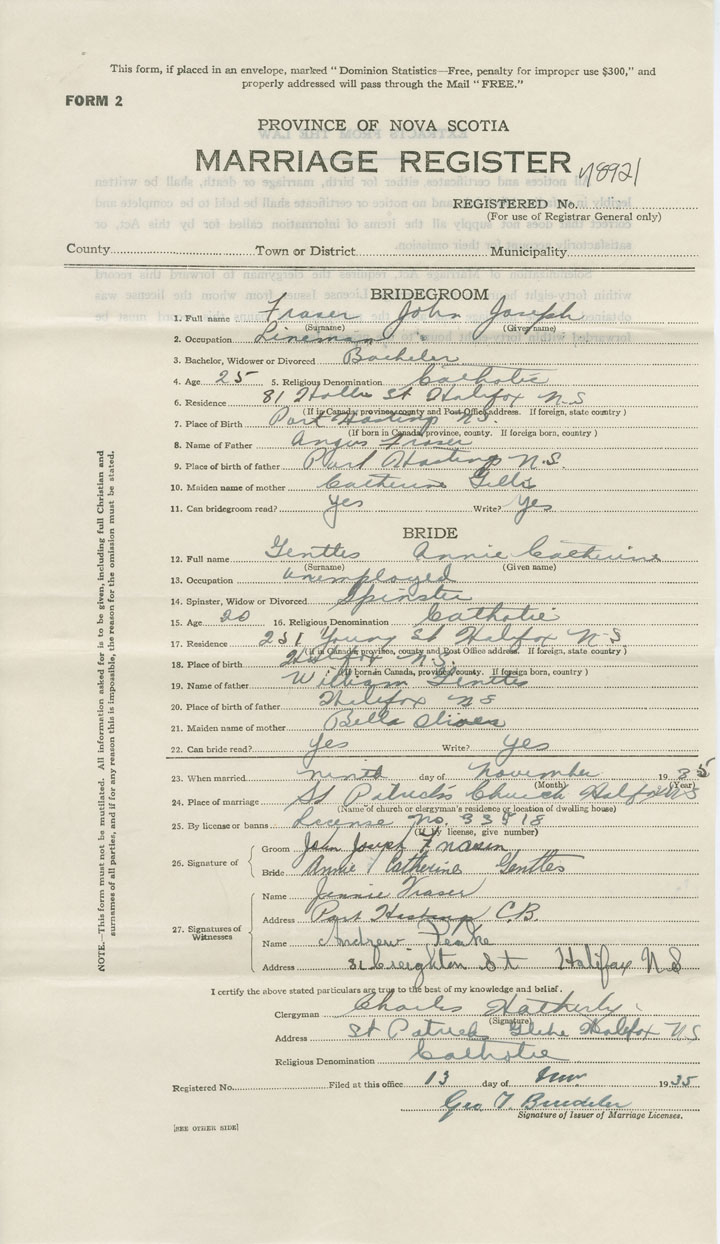 This form, if placed in an envelope, marked "Dominion Statistics—Free, penalty for improper use $300," and
properly addressed will pass through the Mail "FREE."
FORM 2
PROVINCE OF NOVA SCOTIA
MARRIAGE REGISTER
REGISTERED No.
(For use of Registrar General only)
County Town or District Municipality
BRIDEGROOM
1. Full name Fraser John Joseph
(Surname) (Given name)
2. Occupation Lineman
3. Bachelor, Widower or Divorced Bachelor
4. Age 25 5. Religious Denomination Catholic
6. Residence 81 Hollis St Halifax N-S
(If in Canada, province, county and Post Office address. If foreign, state country)
7. Place of Birth Port Hastings N.S.
(If born in Canada, province, county. If foreign born, country)
8. Name of Father Angus Fraser
9. Place of birth of father Port Hastings N.S.
10. Maiden name of mother Catherine Gillis
11. Can bridegroom read? Yes Write? Yes
BRIDE
12. Full name Gentles Annie Catherine
(Surname) (Given name)
13. Occupation Unemployed
14. Spinster, Widow or Divorced Spinster
15. Age 20 16. Religious Denomination Catholic
17. Residence 231 Young St Halifax N-S
(If in Canada, province, county and Post Office address. If foreign, state country)
18. Place of birth Halifax N-S.
(If born in Canada, province, county. If foreign born, country)
19. Name of father William Gentles
20. Place of birth of father Halifax N S
21. Maiden name of mother Bella Oliver
22. Can bride read? Yes Write? Yes
23. When married ninth day of November 1935
(Month) (Year)
24. Place of marriage St Patrick's Church Halifax N S
(Name of church or clergyman's residence or location of dwelling house)
25. By license or banns License No.
(If by license, give number)
26. Signature of
Groom John Joseph Fraser
Bride Annie Catherine Gentles
27. Signatures of Witnesses
Name Jennie Fraser
Address Port Hastings C.B.
Name Andrew Peake
Address 31 Creighton St Halifax N S
I certify the above stated particulars are true to the best of my knowledge and belief.
Clergyman Charles Hatherly
(Signature)
Address St Patricks Glebe Halifax N.S.
Religious Denomination Catholic
Registered No. Filed at this office 13 day of Nov 1935
Geo T.
Signature of Issuer of Marriage Licenses.
[SEE OTHER SIDE]
NOTE.—This form must not be mutilated. All information asked for is to be given, including full Christian and
surnames of all parties, and if for any reason this is impossible, the reason for the omission must be stated.